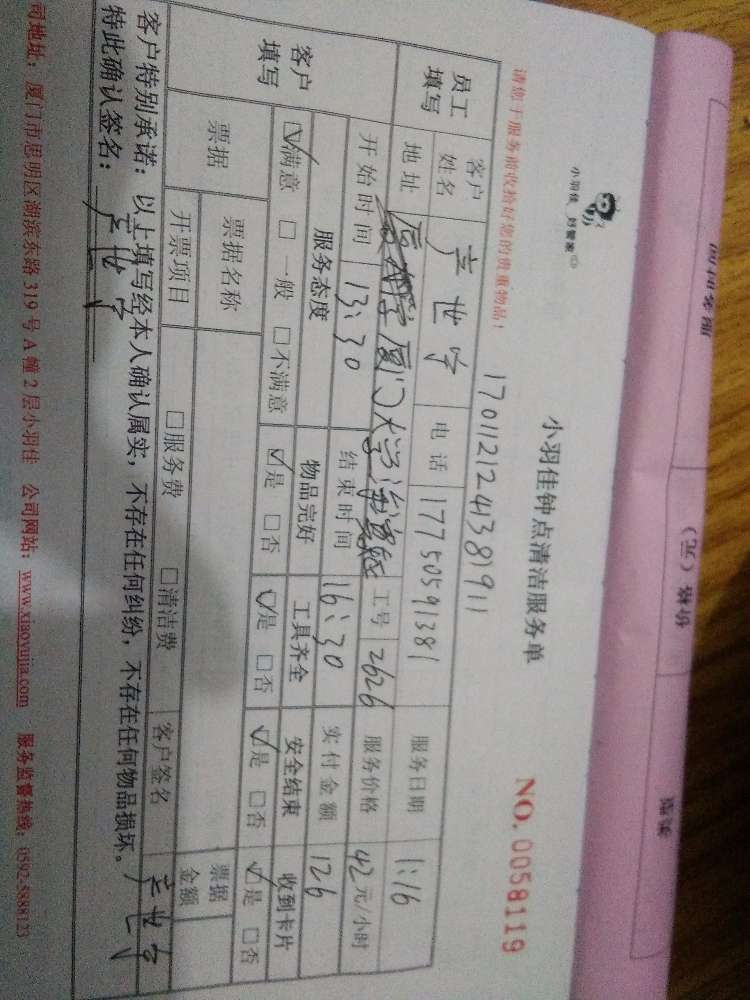 小羽佳 好管家
小羽佳钟点清洁服务单
NO. 0058119
请您于服务前收拾好您的贵重物品！
17011212141381911
员工填写
客户姓名 电话 17750591381 服务日期 1:16
地址 厦门大学海韵 工号 2626 服务价格 42元/小时
开始时间 13:30 结束时间 16:30 实付金额 126
客户填写
服务态度 物品完好 工具齐全 安全结束 收到卡片
☑满意 □一般 □不满意 ☑是 □否 ☑是 □否 ☑是 □否 ☑是 □否
票据 票据名称 票据金额
开票项目 □服务费 □清洁费 客户签名
客户特别承诺：以上填写经本人确认属实，不存在任何纠纷，不存在任何物品损坏。
特此确认签名：
司地址：厦门市思明区湖滨东路319号A幢2层小羽佳 公司网站：www.xiaoyujia.com 服务监督热线：0592-5888123